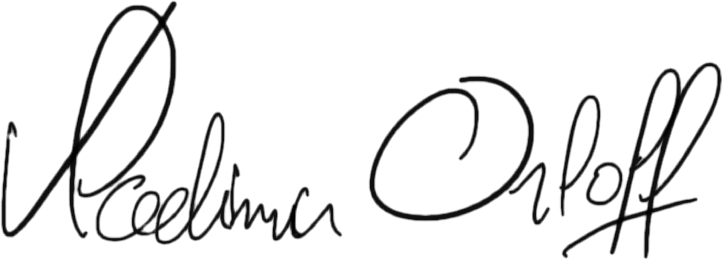 Vladimir Orloff